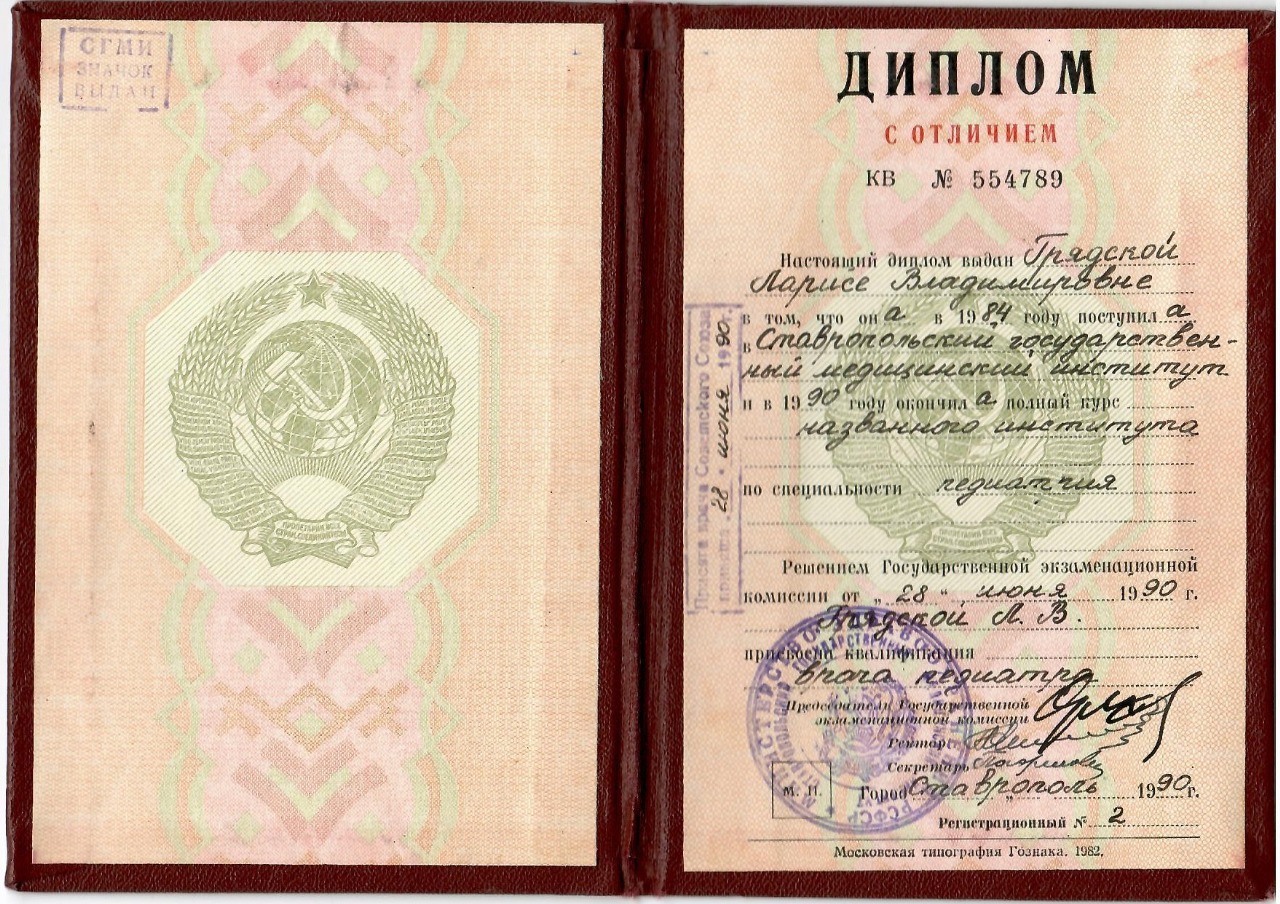 СГМИ
ЗНАЧОК
ВЫДАН
ДИПЛОМ
С ОТЛИЧИЕМ
КВ № 554789
Настоящий диплом выдан Грядской
Ларисе Владимировне
в том, что он а в 1984 году поступил а
в Ставропольский государствен-
ный медицинский институт
и в 1990 году окончил а полный курс
названного института
по специальности педиатрия
Решением Государственной экзаменационной
комиссии от „28“ июня 1990 г.
Грядской Л. В.
присвоена квалификация
врача педиатра
Председатель Государственной
экзаменационной комиссии
Ректор
Секретарь
М. П.
Город Ставрополь 1990 г.
Регистрационный № 2
Московская типография Гознака. 1982.
Присяга врача Советского Союза
принята „28“ июня 1990 г.